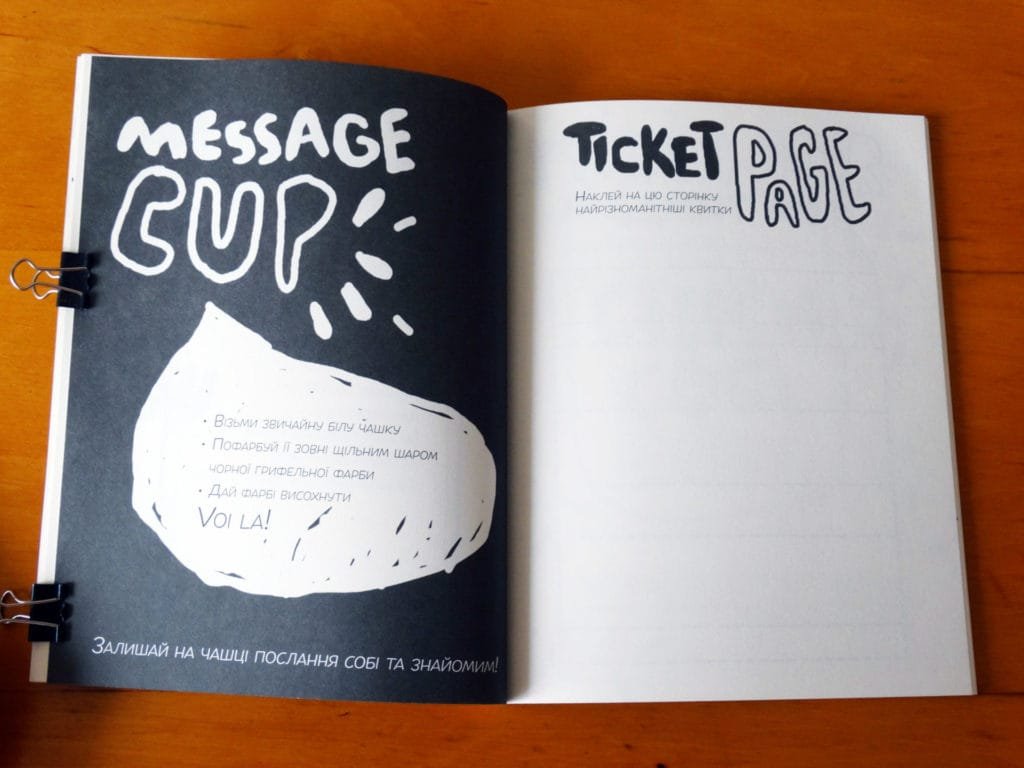 MESSAGE
CUP
• Візьми звичайну білу чашку
• Пофарбуй її зовні щільним шаром
чорної грифельної фарби
• Дай фарбі висохнути
Voi la!
Залишай на чашці послання собі та знайомим!
TICKET PAGE
Наклей на цю сторінку
найрізноманітніші квитки